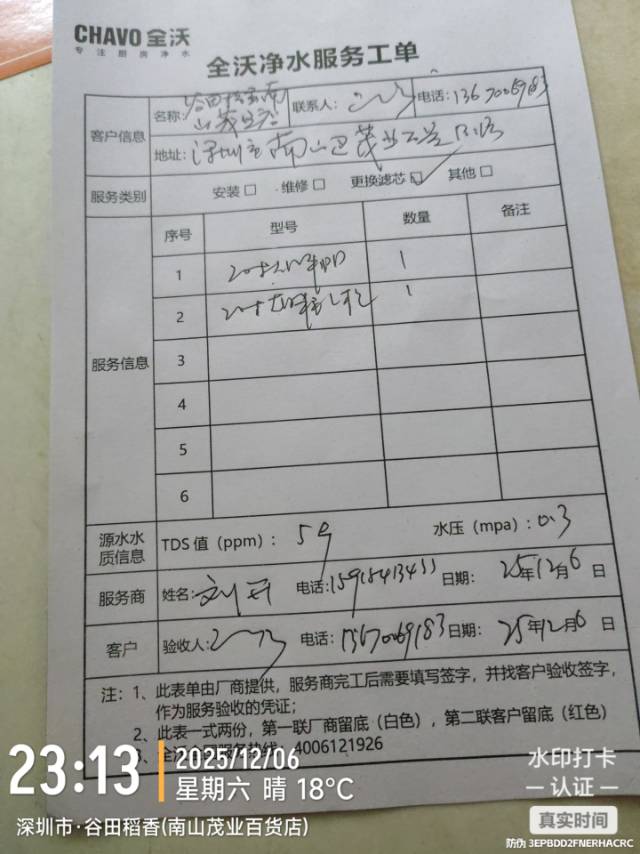 CHAVO 全沃
专注厨房净水
全沃净水服务工单
客户信息
名称: 谷田稻香南山茂业店
联系人:
电话:
地址: 深圳市南山区茂业百货
服务类别
安装□ 维修□ 更换滤芯☑ 其他□
服务信息
序号 型号 数量 备注
1 1
2 1
3
4
5
6
源水水质信息
TDS值（ppm）: 59 水压（mpa）: 0.3
服务商
姓名: 刘 电话: 日期: 25年12月6日
客户
验收人: 电话: 13670069183 日期: 25年12月6日
注: 1、此表单由厂商提供，服务商完工后需要填写签字，并找客户验收签字，
作为服务验收的凭证；
2、此表一式两份，第一联厂商留底（白色），第二联客户留底（红色）
4006121926
23:13
2025/12/06
星期六 晴 18℃
深圳市·谷田稻香(南山茂业百货店)
水印打卡
认证
真实时间
防伪 3EPBDD2FNERHACRC